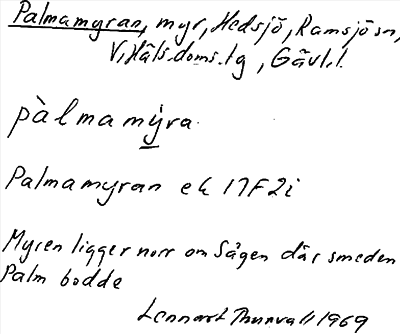 Palmamyran, myr, Hedsjö, Ramsjö sn,
V. Häls. doms. lg, Gävl. l.
pàlmamýra.
Palmamyran ek 17F2i
Myren ligger norr om Sågen där smeden
Palm bodde
Lennart Thunvall 1969